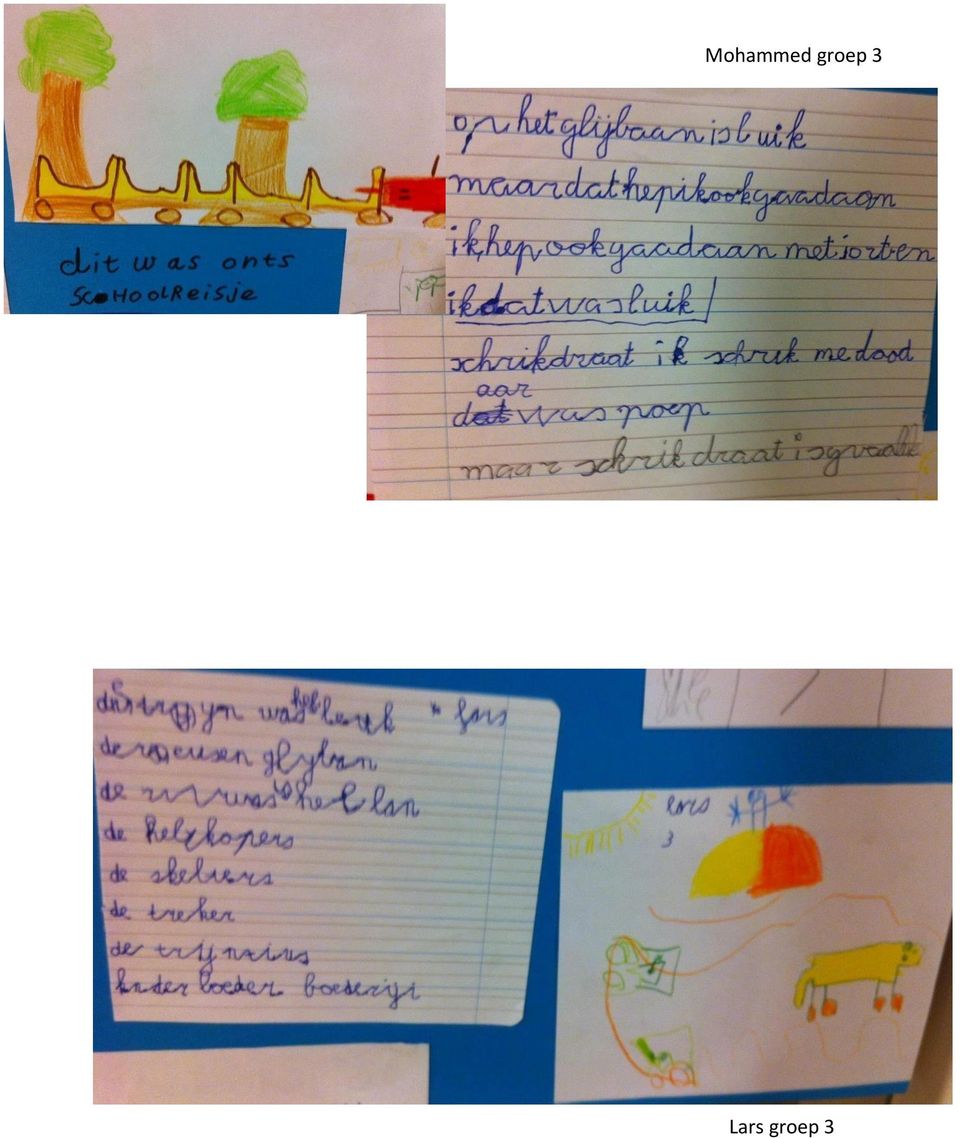 Mohammed groep 3
dit was onts
scHoolReisje
op het glijbaan is luik
maar dat hep ik ook gaadaan
ik hep ook gaadaan met jorben
ik dat was luik
schrikdraat ik schruk me dood
aar
dat was poep
maar schrikdraat is gvaalk
was heel leuk Lars
de glyban
de was hel lan
de helykopers
de skelters
de treker
de trijnzius
knder boeder boederyi
Lars
3
Lars groep 3